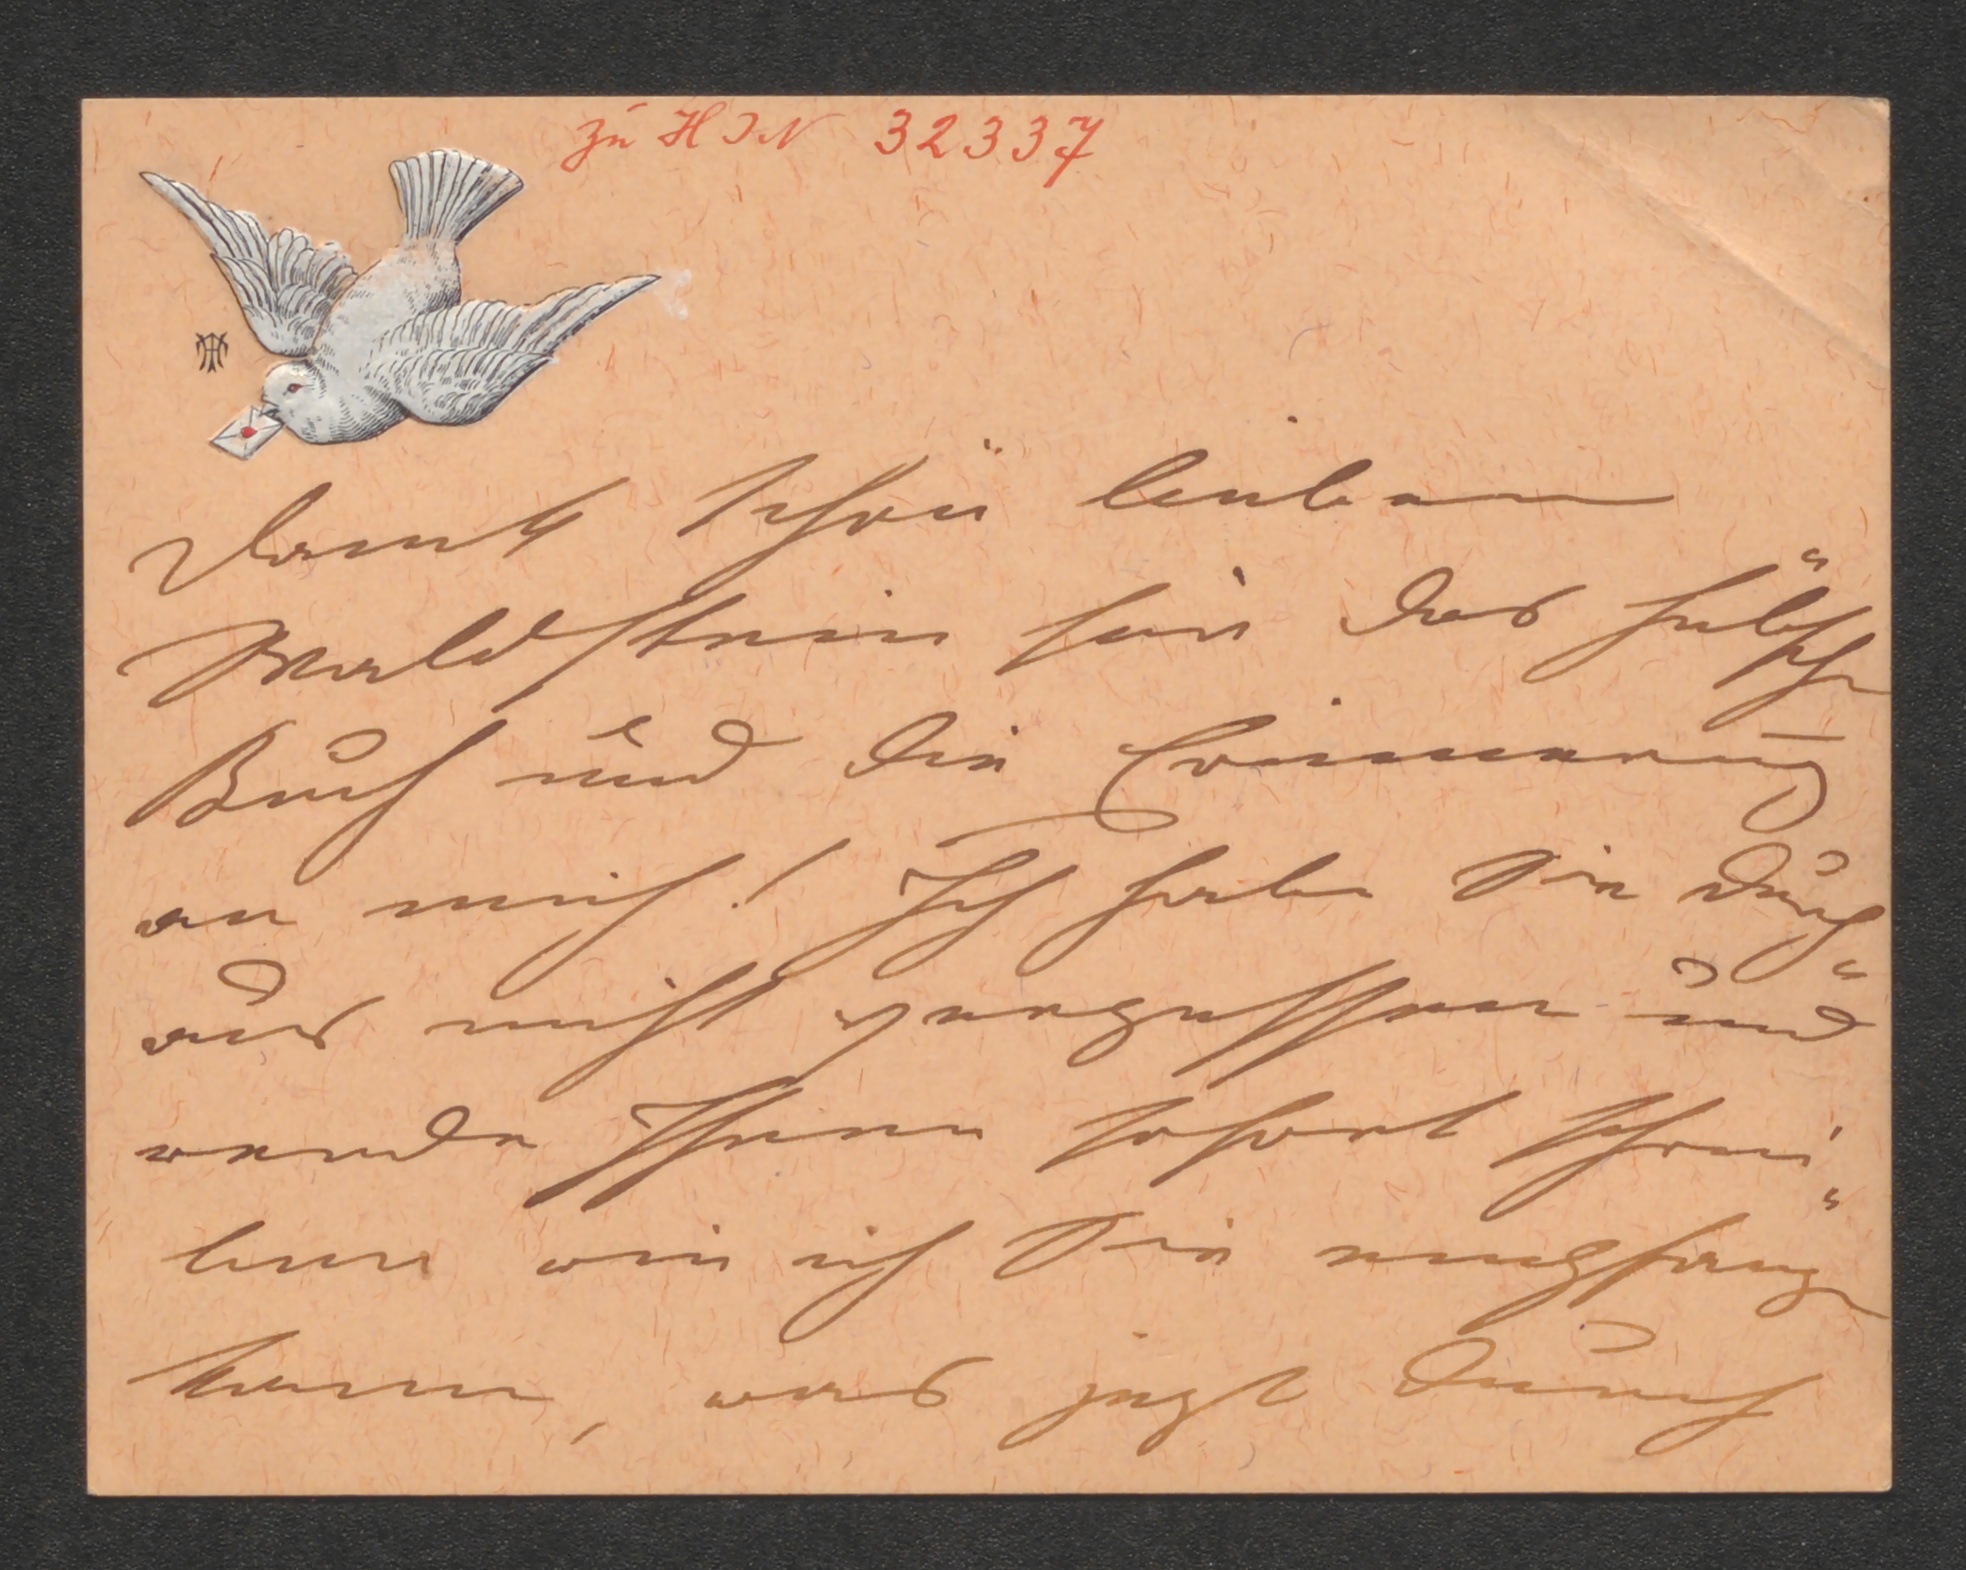 zu H I N 32337
Dank schön lieber
Waldstein für das hübsche
Buch und die Erinnerung
an mich! Ich habe Sie durch"
aus nicht vergessen und
werde Ihnen sofort schrei"
ben wie ich Sie empfangen
kann, was jetzt durch